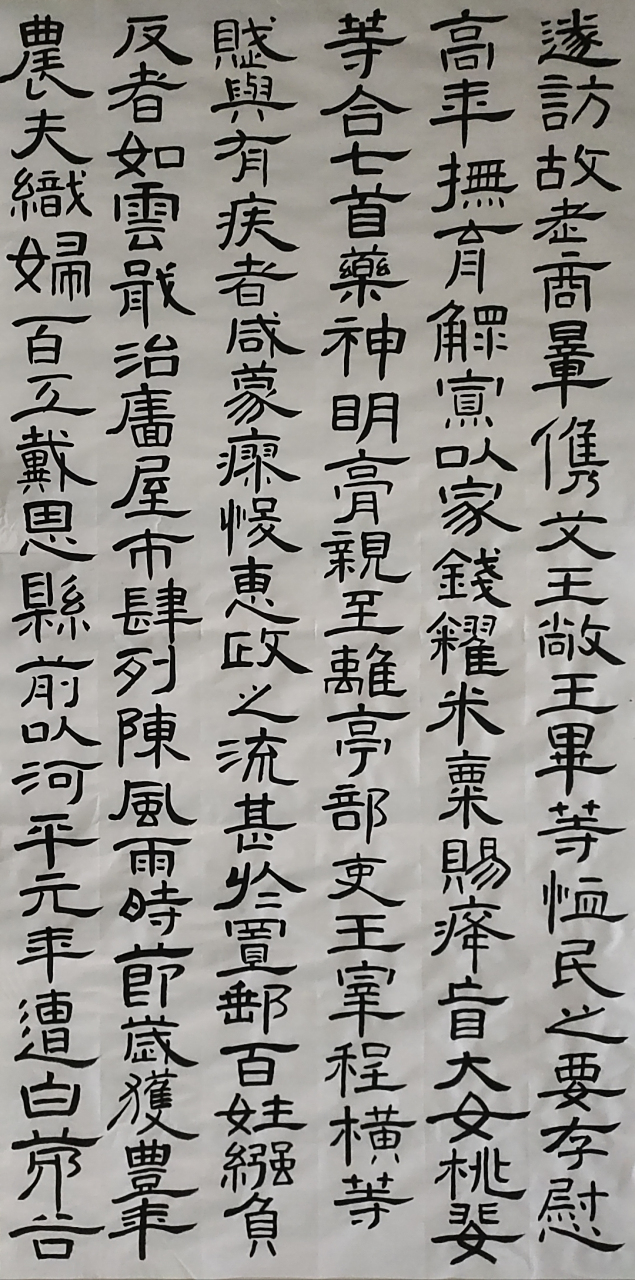 遂訪故老商暈儁艾王敞王畢等恤民之要存慰
高年撫育鰥寡以家錢糴米粟賜癃盲大女桃婓
等合七首藥神明膏親至離亭部吏王宰程橫等
賦與有疾者咸蒙瘳悛惠政之流甚於置郵百姓繦負
反者如雲戢治廧屋市肆列陳風雨時節歲獲豐年
農夫織婦百工戴恩縣前以河平元年遭白茅谷